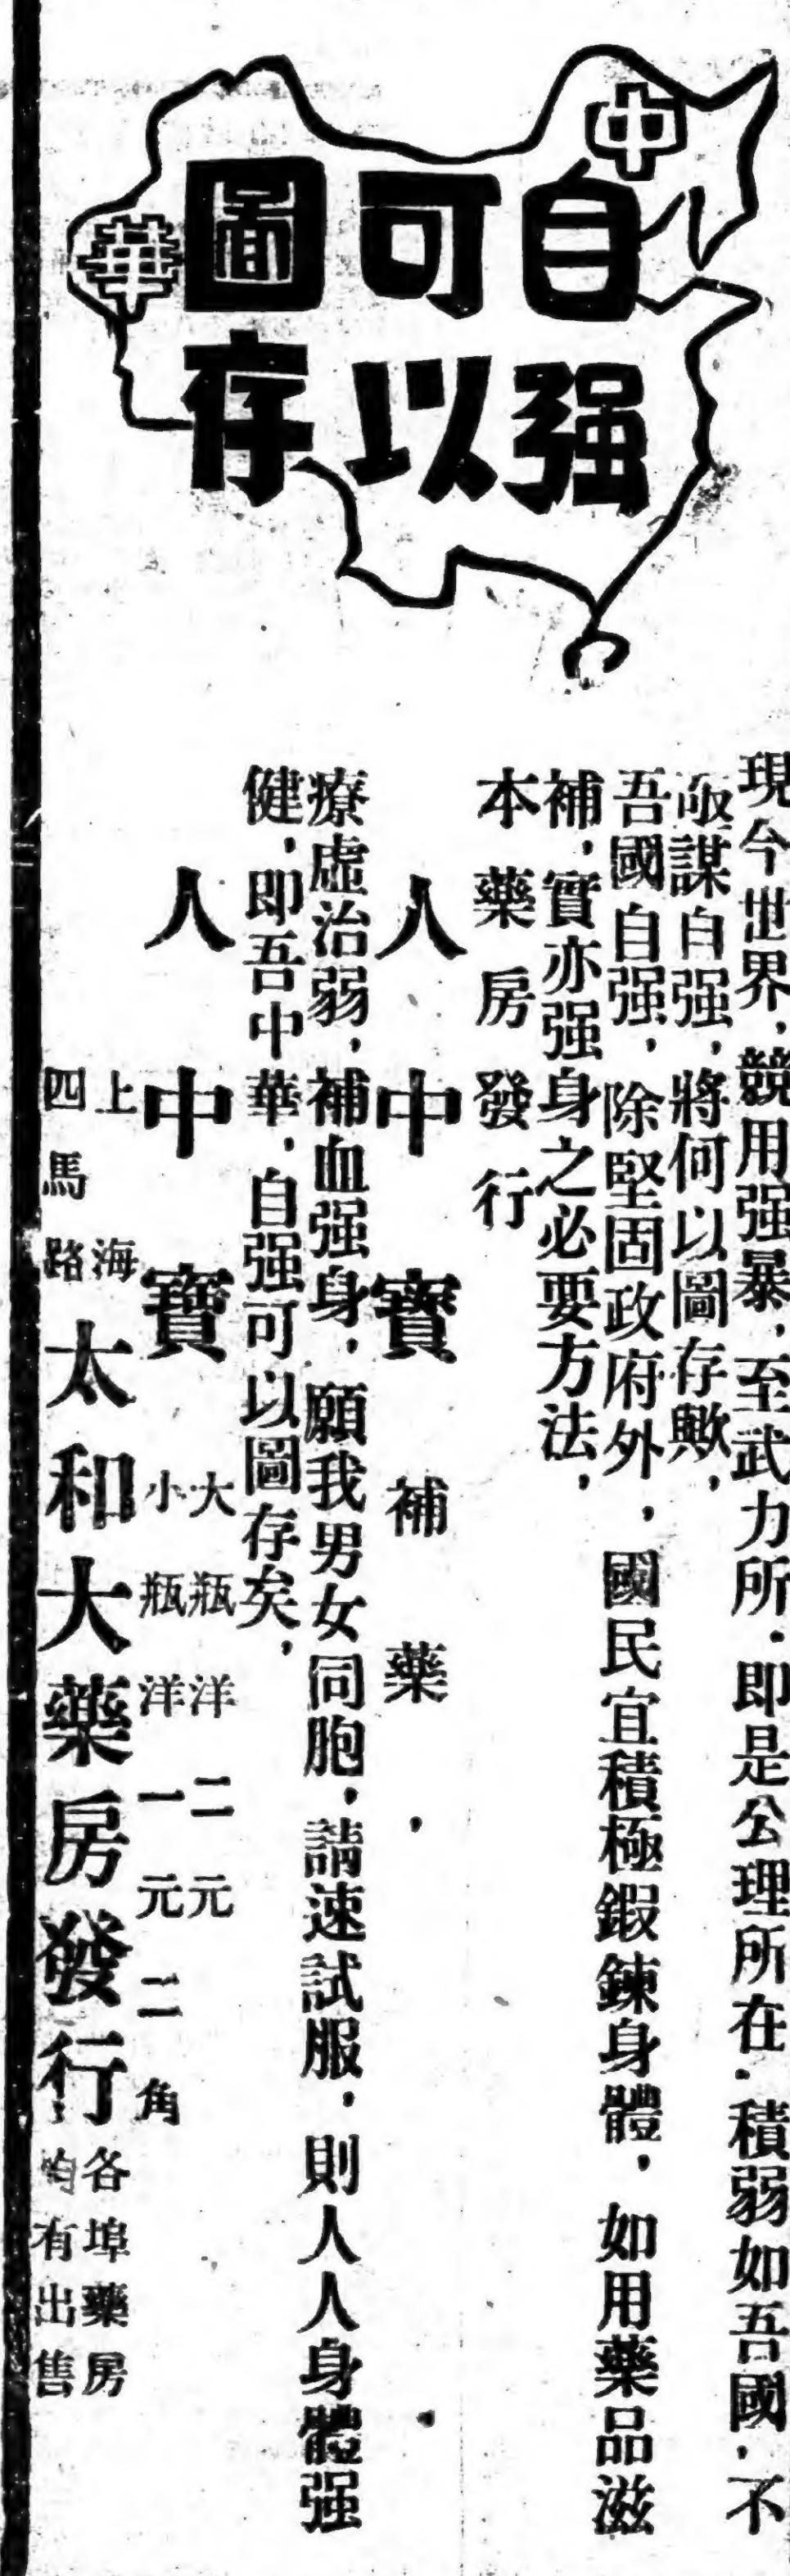 中華
自强
可以
圖存
現今世界，競用强暴，至武力所，即是公理所在，積弱如吾國，不
亟謀自强，將何以圖存歟，
吾國自强，除堅固政府外，國民宜積極鍜鍊身體，如用藥品滋
補，實亦强身之必要方法，
本藥房發行
人中寳補藥，
療虛治弱，補血强身，願我男女同胞，請速試服，則人人身體强
健，即吾中華，自强可以圖存矣，
人中寳
大瓶洋二元
小瓶洋一元二角
上海
四馬路
太和大藥房發行
各埠藥房
均有出售